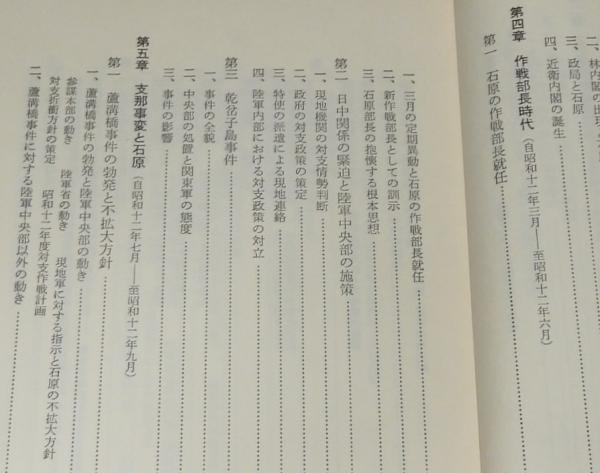 二、林内閣の出現
三、政局と石原
四、近衛内閣の誕生
第四章 作戦部長時代（自昭和十二年三月――至昭和十二年六月）
第一 石原の作戦部長就任
一、三月の定期異動と石原の作戦部長就任
二、新作戦部長としての訓示
三、石原部長の抱懐する根本思想
第二 日中関係の緊迫と陸軍中央部の施策
一、現地機関の対支情勢判断
二、政府の対支政策の策定
三、特使の派遣による現地連絡
四、陸軍内部における対支政策の対立
第三 乾岔子島事件
一、事件の全貌
二、中央部の処置と関東軍の態度
三、事件の影響
第五章 支那事変と石原（自昭和十二年七月――至昭和十二年九月）
第一 蘆溝橋事件の勃発と不拡大方針
一、蘆溝橋事件の勃発と陸軍中央部の動き
参謀本部の動き 陸軍省の動き 現地軍に対する指示と石原の不拡大方針
対支折衝方針の策定 昭和十二年度対支作戦計画
二、蘆溝橋事件に対する陸軍中央部以外の動き